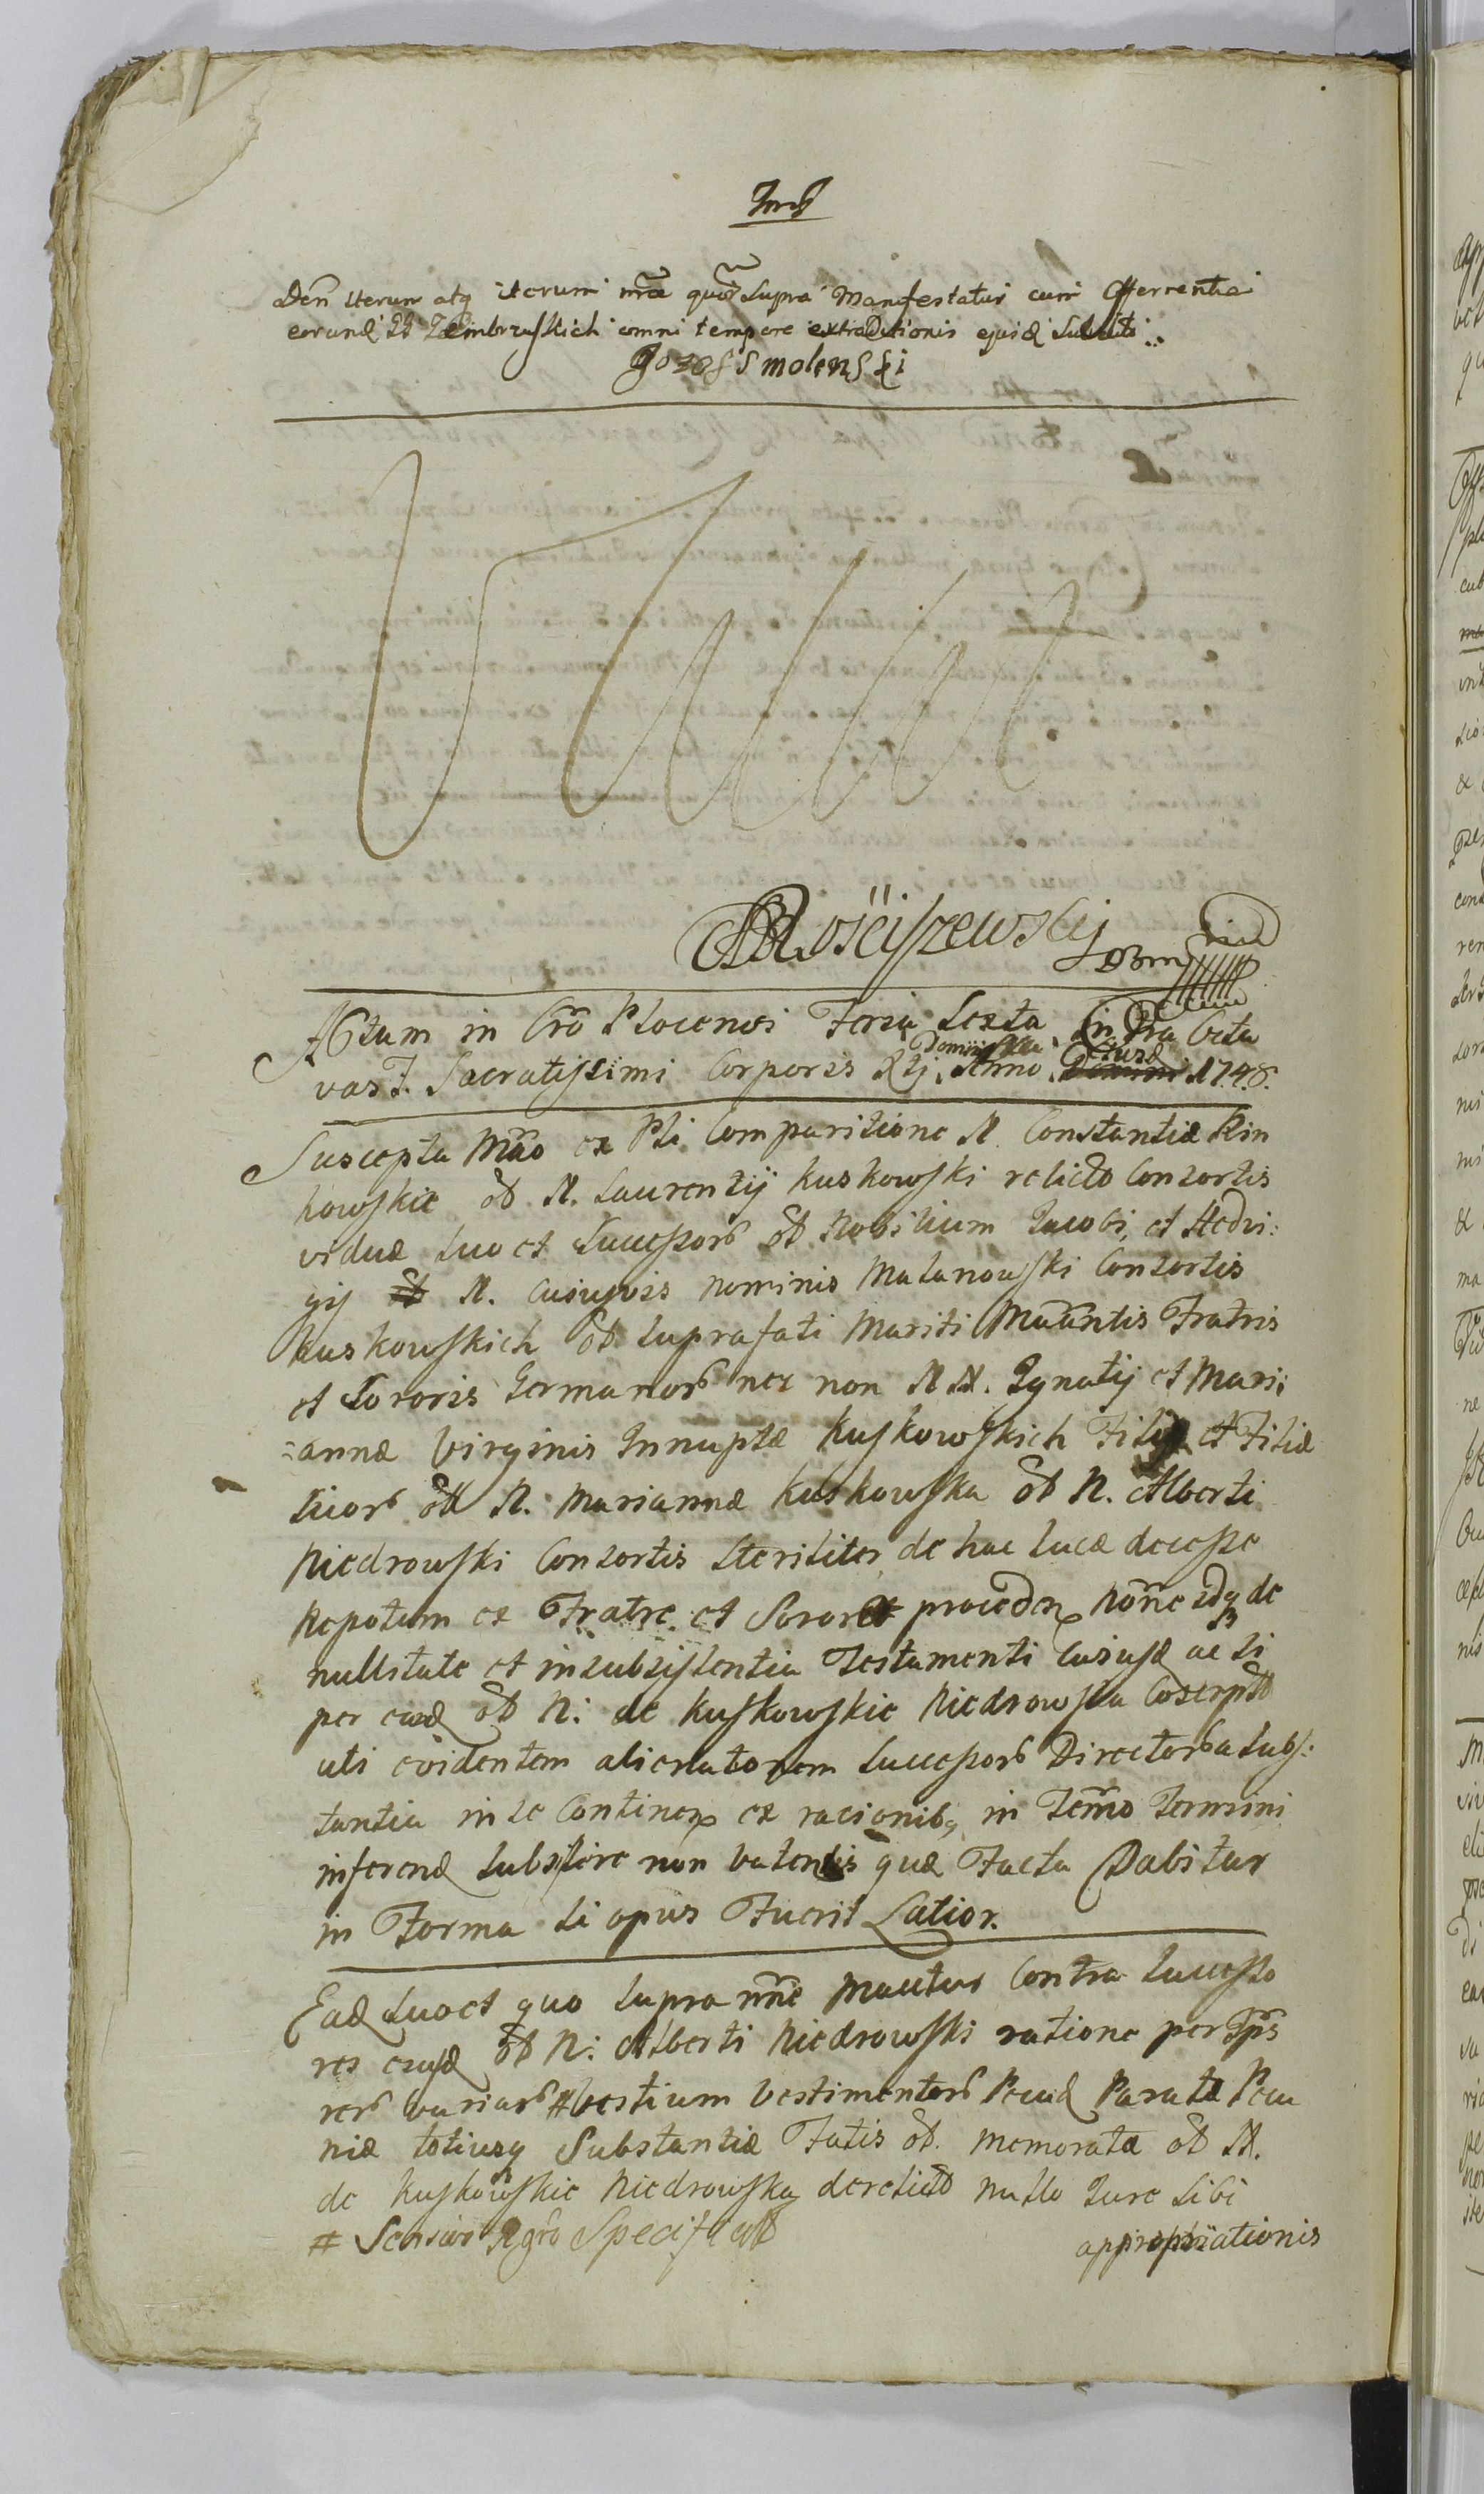 Den̄ iterum atq iterum mrā quor̄ Supra Manifestatur cum Offerrentia
eorund̄ GG Zembrzuskich omni tempore extraditionis ejusd Subditi
Jozef Smolenski
Rościszewskij
Actum in Crō Plocensi Feria Sexta Intra Octa
vas F. Sacratissimi Corporis Xti, Anno Domini 1748.
Suscepta Mrāō ex Pti Comparitione N. Constantiæ Kin
kowskie ol N. Laurentij Kuskowski relictæ Consortis
viduæ suo et Successorū ol Nobilium Jacobi, et Hedvi:
gis ol N. Cujusvis nominis Malanowski Consortis
Kuskowskich ol suprafati Mariti Māāntis Fratris
et Sororis Germanorū nec non NN. Ignatij et Mari:
=annæ Virginis Innuptæ Kuskowskich Filij et Filiæ
suorū ol N. Mariannæ Kuskowska ol N. Alberti
Niedrowski Consortis steriliter de hac luce decesse
Nepotum ex Fratre et Sorore proceden Nōne idq de
nullitate et insubsistentia Testamenti Cujusd ac si
per eand ol N: de Kuskowskie Niedrowska Conscrpti
uti evidentem alienatonem Successorū Directe substa:
tantia in se Continen ex racionibq in Termō Termini
inferend subsistere non valentis quæ Facta Dabitur
in Forma si opus Fuerit Latior.
Ead suo et quo supra nn̄e Māātur Contra Successo
res ejusd ol N: Alberti Niedrowski ratione per Ips
rerū variarū # Vestium Vestimentorū Pecud Paratæ Pecu
niæ totiusq Substantiæ Fatis ol. memoratæ ol N.
de Kuskowskie Niedrowska derelictæ nullo Jure sibi
appropriationis